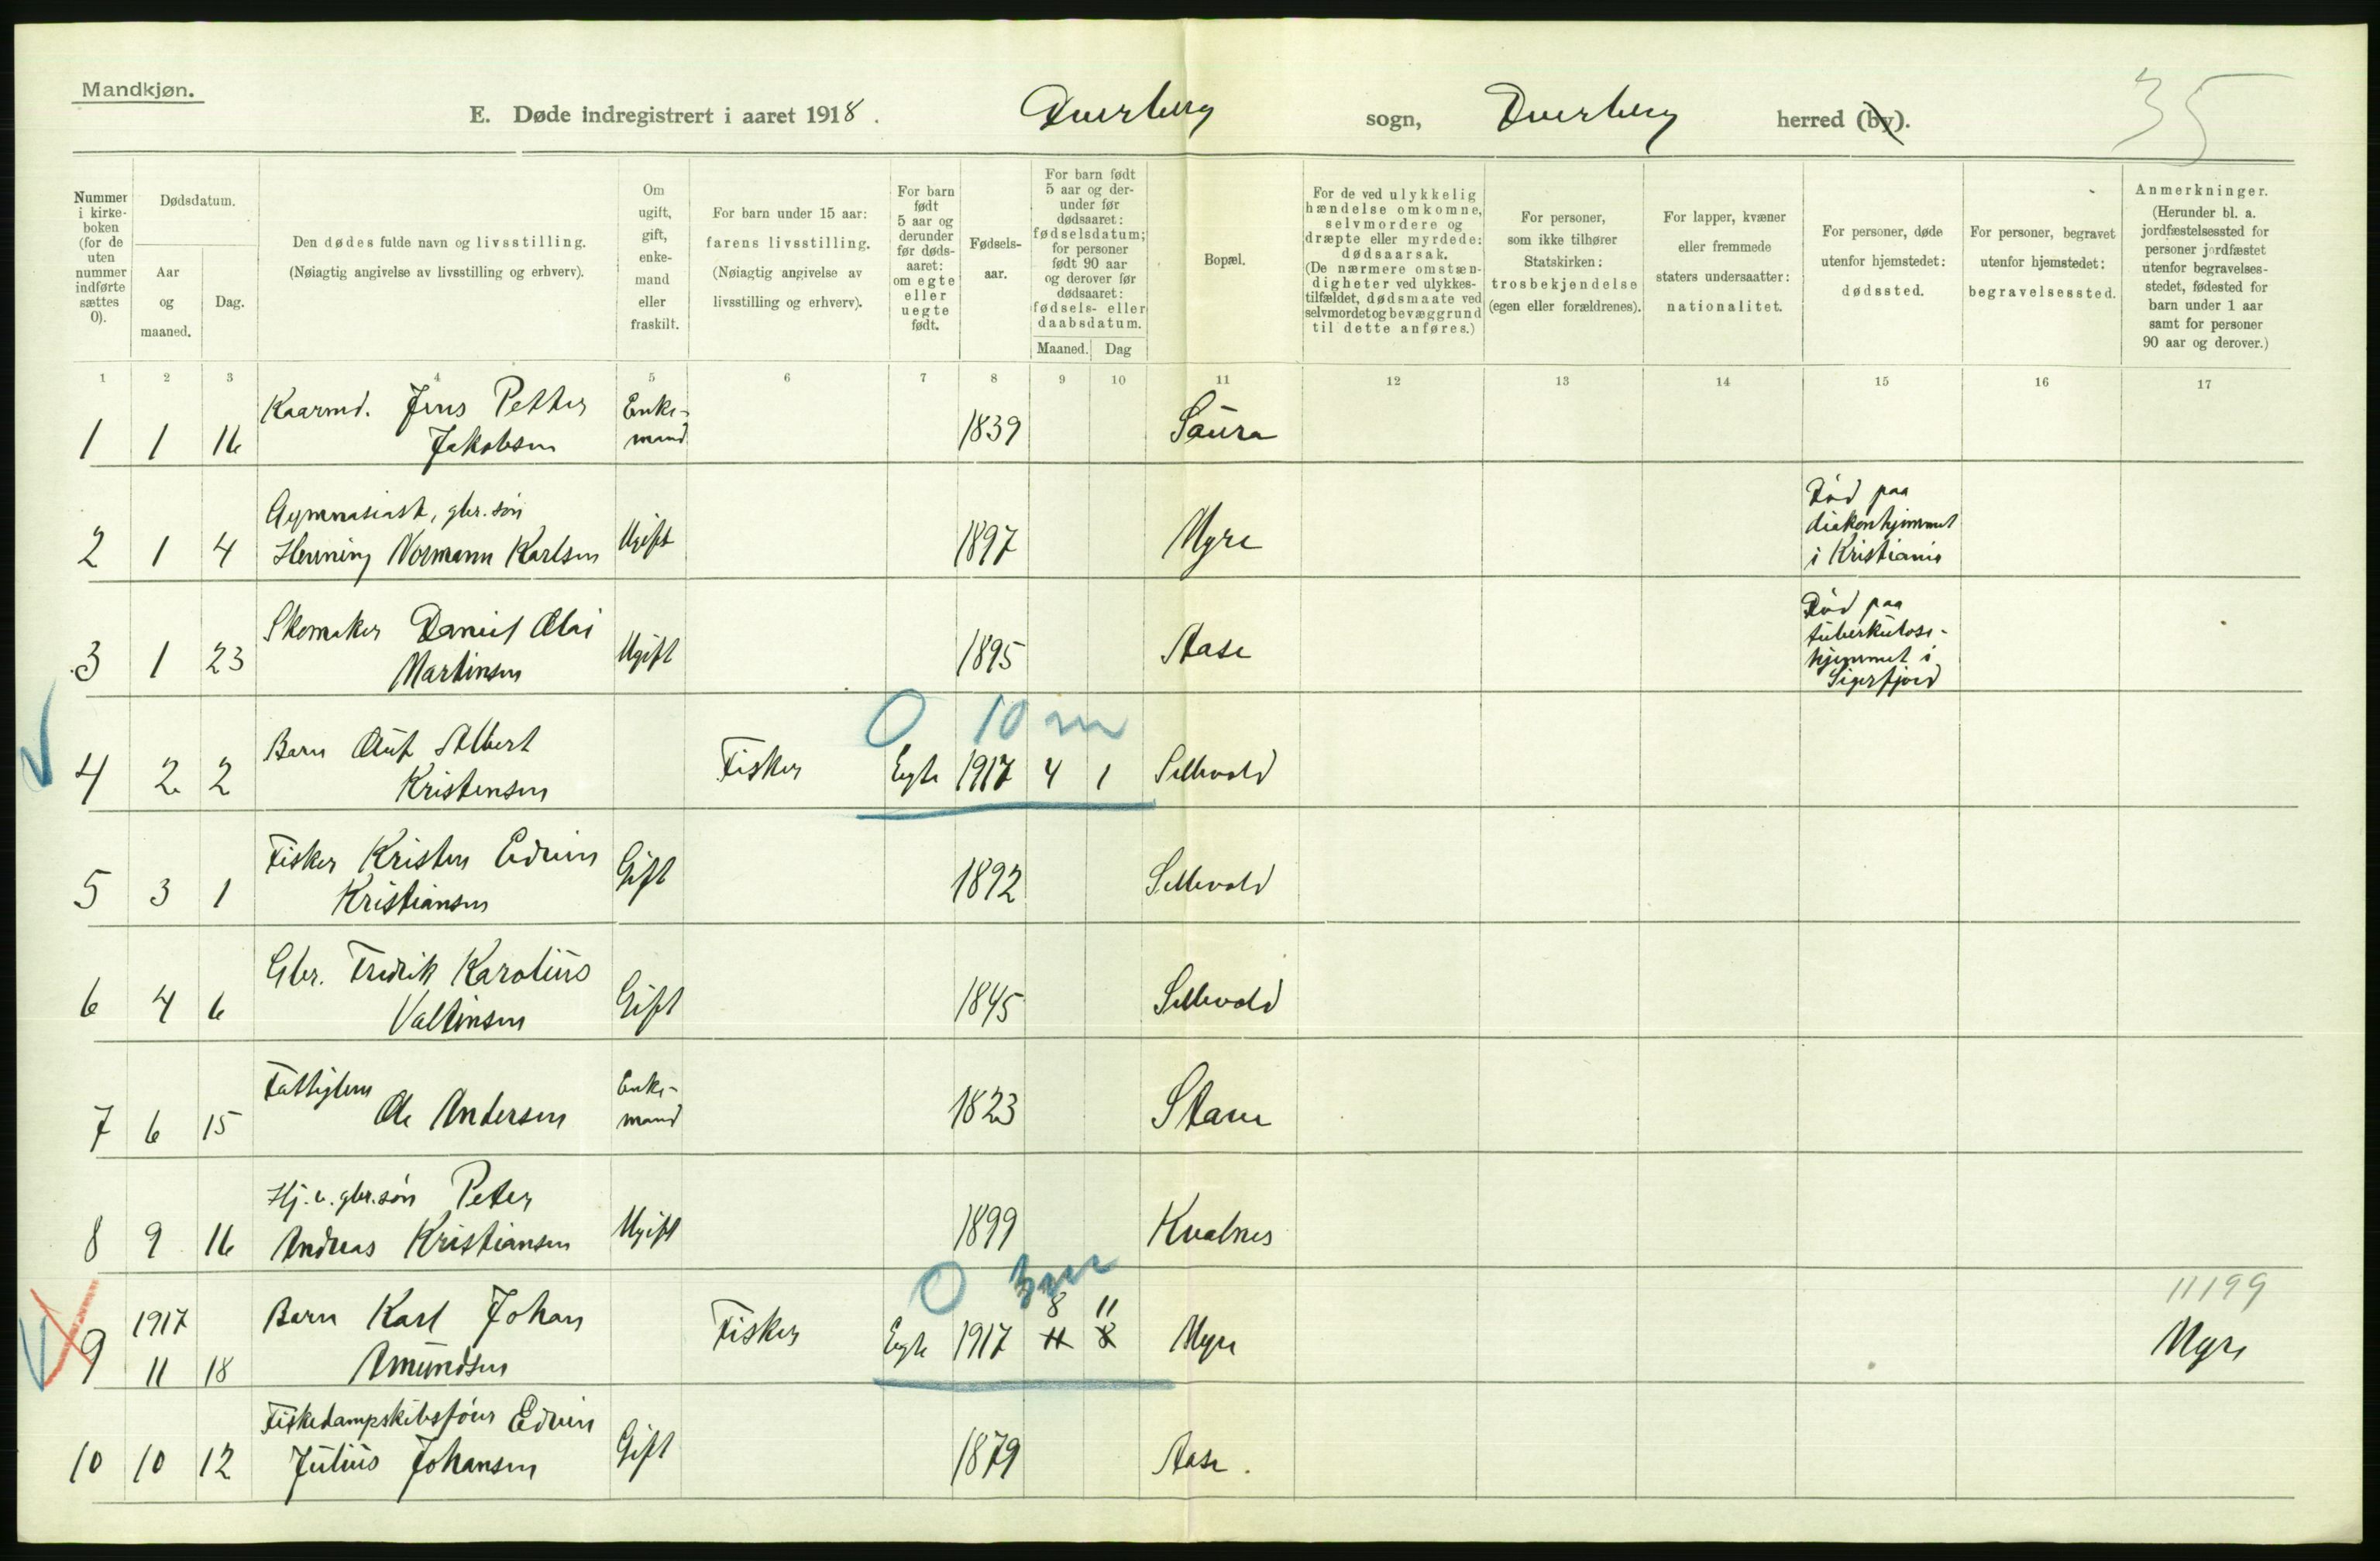 Mandkjøn.
E. Døde indregistrert i aaret 1918. Dverberg sogn, Dverberg herred (by).
35
Nummer i kirke-boken (for de uten nummer indførte sættes 0).
Dødsdatum.
Aar og maaned.
Dag.
Den dødes fulde navn og livsstilling.
(Nøiagtig angivelse av livsstilling og erhverv).
Om ugift, gift, enke-mand eller fraskilt.
For barn under 15 aar: farens livsstilling.
(Nøiagtig angivelse av livsstilling og erhverv).
For barn født 5 aar og derunder før døds-aaret: om egte eller uegte født.
Fødsels-aar.
For barn født 5 aar og der-under før dødsaaret: fødselsdatum; for personer født 90 aar og derover før dødsaaret: fødsels- eller daabsdatum.
Maaned. Dag
Bopæl.
For de ved ulykkelig hændelse omkomne, selvmordere og dræpte eller myrdede: dødsaarsak.
(De nærmere omstæn-digheter ved ulykkes-tilfældet, dødsmaate ved selvmord og bevæggrund til dette anføres.)
For personer, som ikke tilhører Statskirken: trosbekjendelse (egen eller forældrenes).
For lapper, kvæner eller fremmede staters undersaatter: nationalitet.
For personer, døde utenfor hjemstedet: dødssted.
For personer, begravet utenfor hjemstedet: begravelsessted.
Anmerkninger.
(Herunder bl. a. jordfæstelsessted for personer jordfæstet utenfor begravelses-stedet, fødested for barn under 1 aar samt for personer 90 aar og derover.)
1 2 3 4 5 6 7 8 9 10 11 12 13 14 15 16 17
1 1 16 Kaarmd. Jens Petter Jakobsen Enke-mand 1839 Saura
2 1 4 Gymnasiast, gbr. søn Henning Normann Karlsen Ugift 1897 Myre Død paa diakonhjemmet i Kristiania
3 1 23 Skomaker Daniel Olai Martinsen Ugift 1895 Aase Død paa tuberkulose-hjemmet i Sigerfjord
0 10 m
4 2 2 Barn Oluf Albert Kristensen Fisker Egte 1917 4 1 Sellevold
5 3 1 Fisker Kristen Edvin Kristiansen Gift 1892 Sellevold
6 4 6 Gbr. Fredrik Karolius Valtinsen Gift 1845 Sellevold
7 6 15 Fattiglem Ole Andersen Enke-mand 1823 Stave
8 9 16 Hj. v. gbr. søn Peter Andreas Kristiansen Ugift 1899 Kvalnes
0 3 m
11199
9 1917 11 18 Barn Karl Johan Amundsen Fisker Egte 1917 8 11 11 8 Myre Myre
10 10 12 Fiskedampskibsfører Edvin Julius Johansen Gift 1879 Aase.